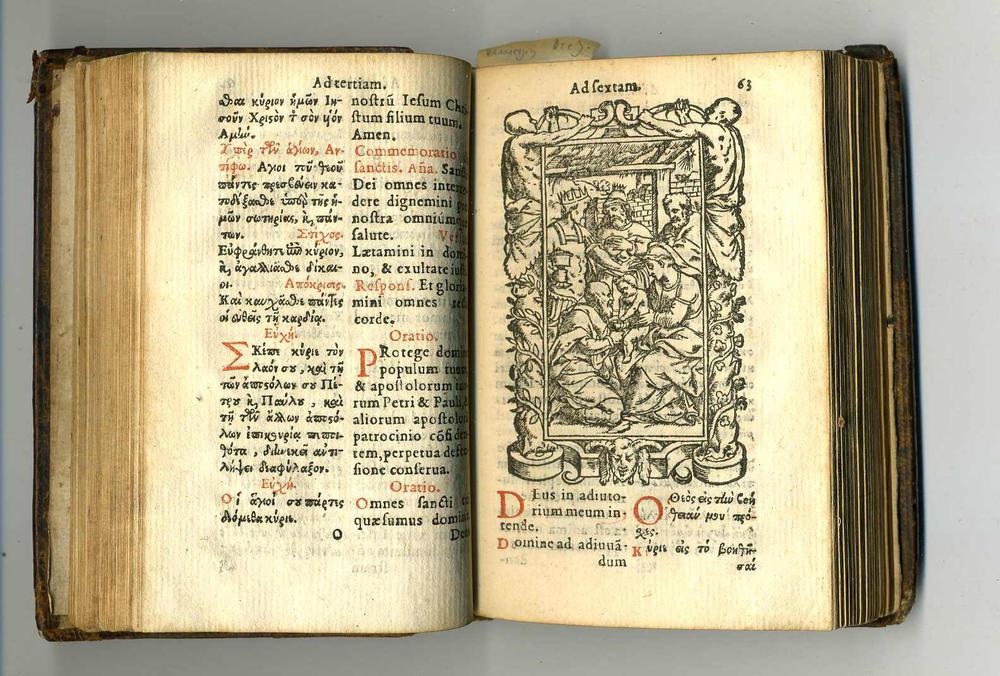 Ad tertiam.
κύριον ἡμῶν Ιη-
σοῦν Χριστὸν τ σὸν υἱόν
Αμήν.
Υπὲρ τῶν ἁγίων, Αν-
τίφω. Αγιοι τοῦ θεοῦ
πάντες πρεσβεύειν κα-
ὑπὲρ τῆς ἡ-
μῶν σωτηρίας, κ πάν-
των. Στίχος.
Εὐφράνθητε κύριον,
κ ἀγαλλιᾶσθε δίκαι-
οι. Απόκρισις.
Καὶ καυχᾶσθε πάντες
οἱ εὐθεῖς τῇ καρδίᾳ.
Εὐχή.
Σκέπε κύριε τὸν
λαόν σου, καὶ τῇ
τῶν ἀποστόλων σου Πέ-
τρου κ Παύλου, καὶ
τῇ τῶν ἄλλων ἀποστό-
λων ἐπικουρίᾳ πεποι-
θότα, διηνεκεῖ ἀντι-
λήψει διαφύλαξον.
Εὐχή.
Οἱ ἅγιοί σου πάντες
κύριε.
nostrū Iesum Chri
stum filium tuum.
Amen.
Commemoratio
sanctis. Aña. San
Dei omnes inter
dere dignemini
nostra omniúm
salute. Ve
Lætamini in dom
no, & exultate ius
Respons. Et gloria
mini omnes re
corde.
Oratio.
PRotege domi
populum tuum
& apostolorum tu
rum Petri & Pauli,
aliorum apostolo
patrocinio cōfiden
tem, perpetua defen
sione conserua.
Oratio.
Omnes sancti
quæsumus domin
O
De
Ad sextam.
63
DEus in adiuto-
rium meum in-
tende.
Domine ad adiuuā-
dum
ΟΘεὸς εἰς τὴν βοή
θειάν μου πρό-
χες.
Κύριε εἰς τὸ βοηθῆ-
σαί